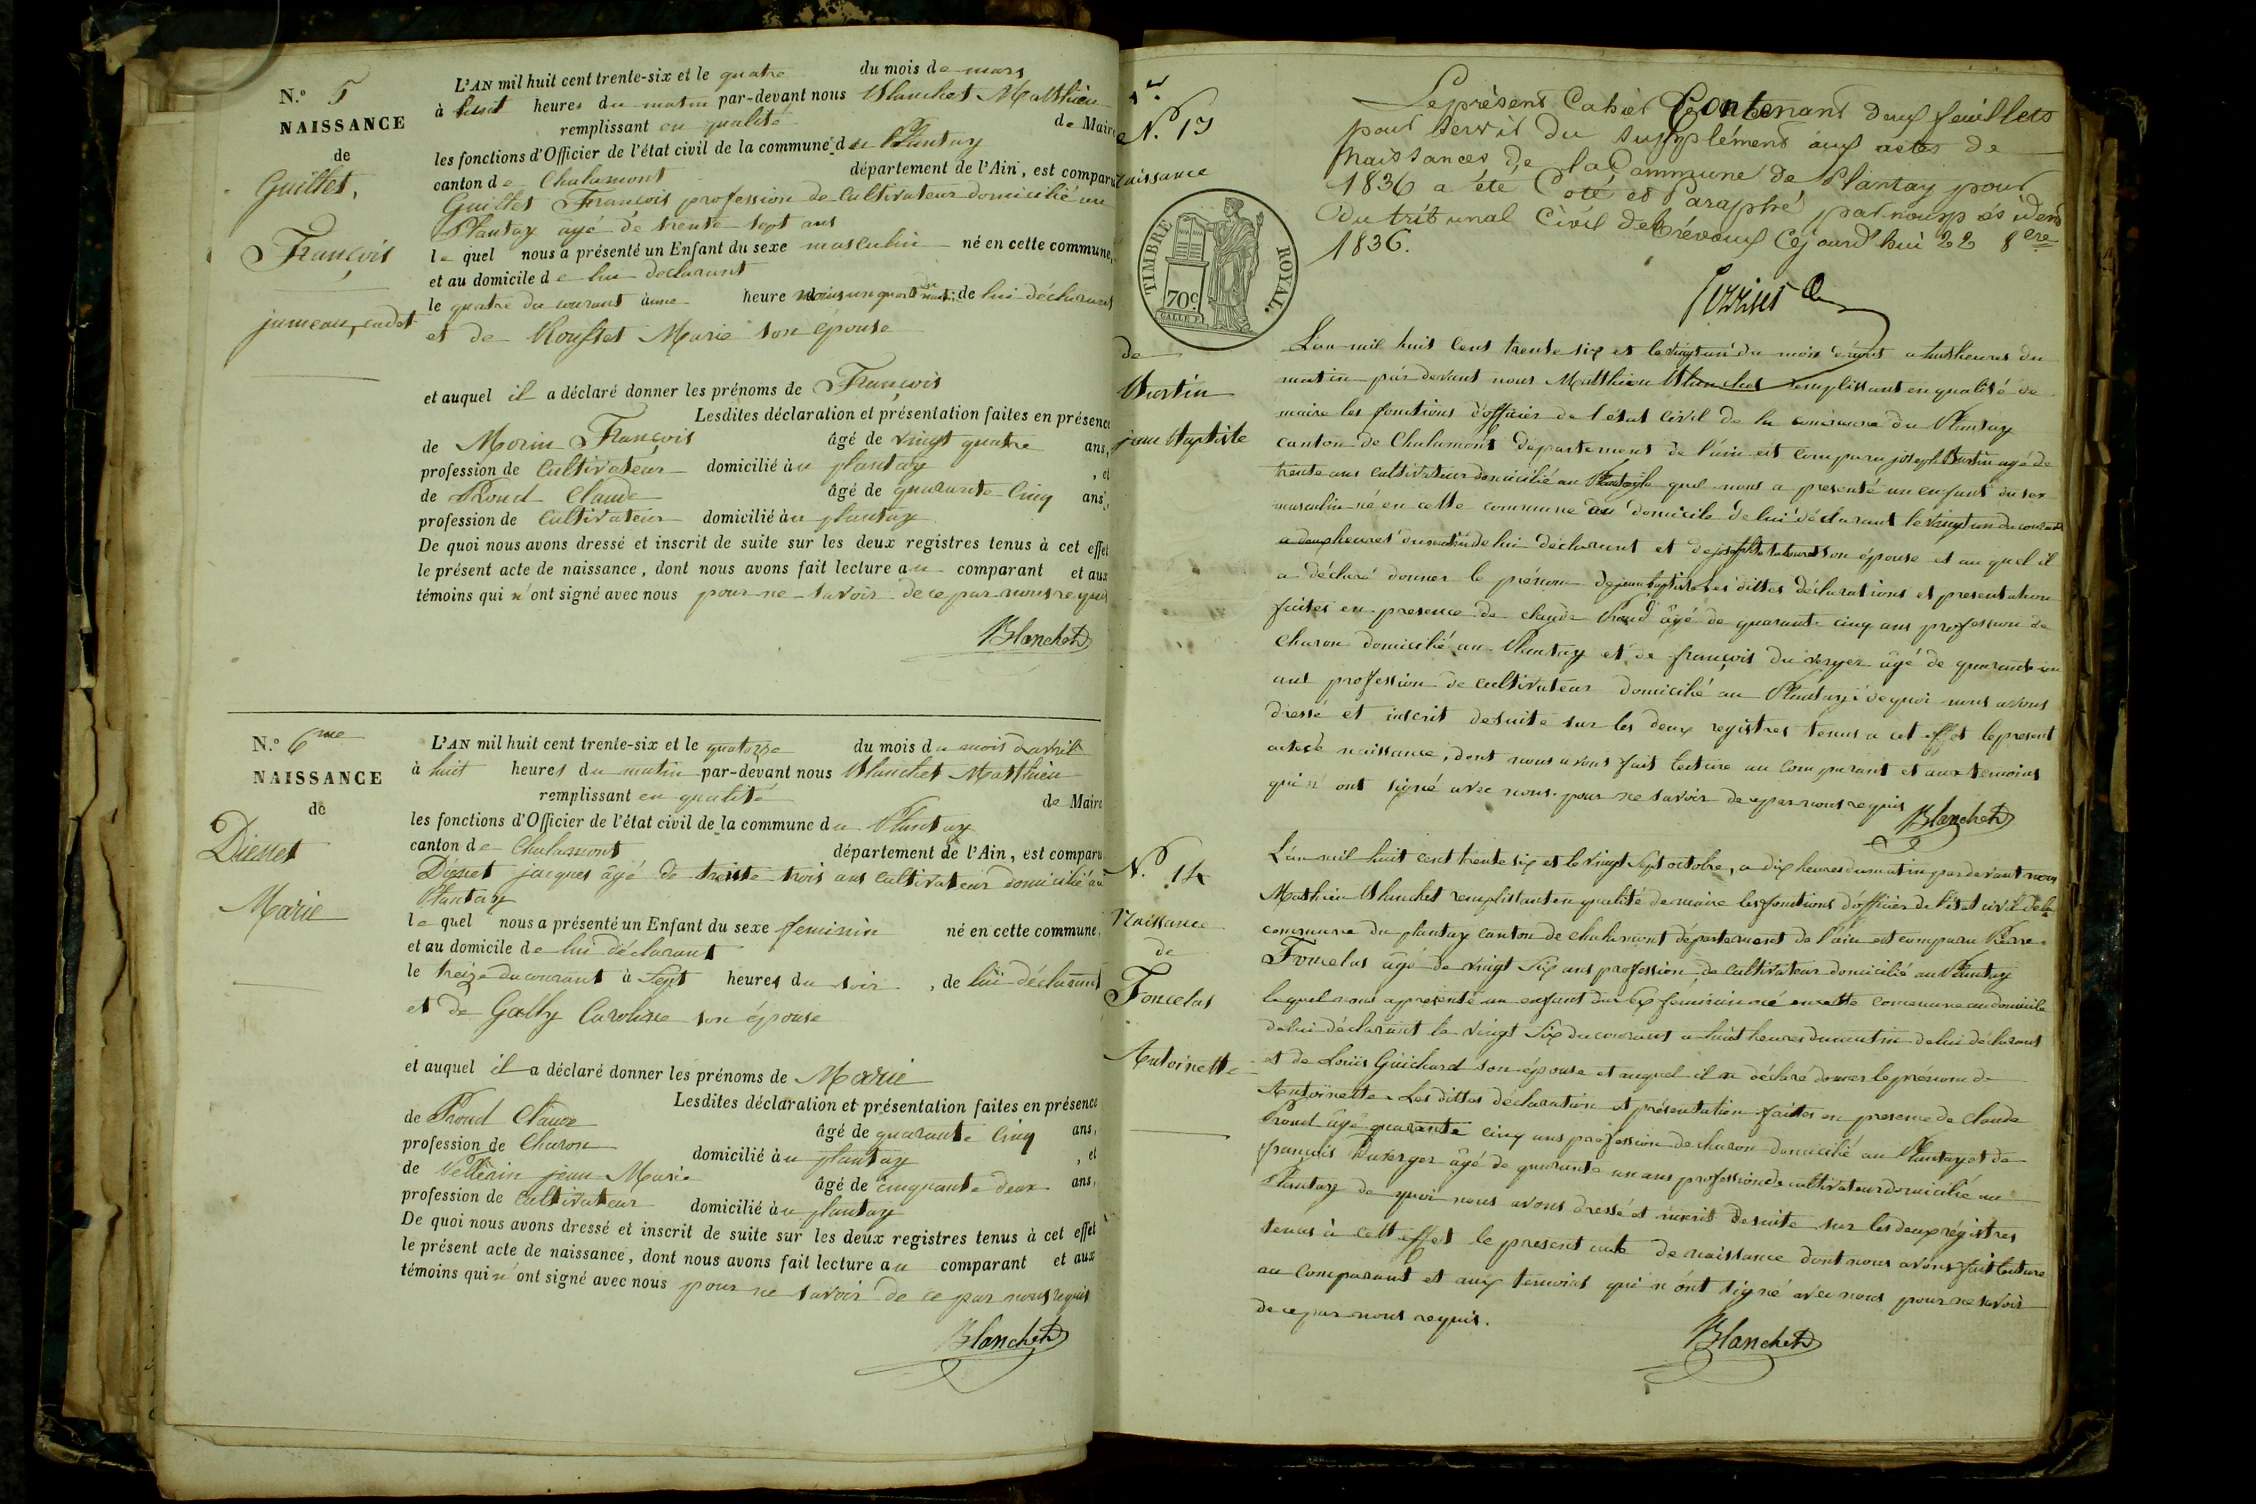 N.° 5
NAISSANCE
de
Guillet,
François
jumeau, cadet
L'AN mil huit cent trente-six et le quatre du mois de mars
à huit heures du matin par-devant nous Blanchet Matthieu
remplissant en qualité de Maire
les fonctions d'Officier de l'état civil de la commune du Plantay
canton de Chalamont département de l'Ain, est comparu
Guillet François profession de Cultivateur domicilié au
Plantay agé de trente sept ans
le quel nous a présenté un Enfant du sexe masculin né en cette commune,
et au domicile de lui déclarant
le quatre du courant à une heure moins un quart de lui déclarant
et de Marie son épouse
et auquel il a déclaré donner les prénoms de François
Lesdites déclaration et présentation faites en présence
de Morin François âgé de vingt quatre ans,
profession de Cultivateur domicilié au plantay, et
de Proud Claude âgé de quarante Cinq ans,
profession de Cultivateur domicilié au plantay
De quoi nous avons dressé et inscrit de suite sur les deux registres tenus à cet effet
le présent acte de naissance, dont nous avons fait lecture au comparant et aux
témoins qui n'ont signé avec nous pour ne savoir de ce par nous requis
Blanchet
N.° 6me
NAISSANCE
de
Marie
L'AN mil huit cent trente-six et le quatorze du mois du mois d'avril
à huit heures du matin par-devant nous Blanchet Matthieu
remplissant en qualité de Maire
les fonctions d'Officier de l'état civil de la commune du Plantay
canton de Chalamont département de l'Ain, est comparu
jacques âgé de trente trois ans cultivateur domicilié au
Plantay
le quel nous a présenté un Enfant du sexe feminin né en cette commune,
et au domicile de lui déclarant
le treize du courant à Sept heures du soir, de lui déclarant
et de Galby Caroline son épouse
et auquel il a déclaré donner les prénoms de Marie
Lesdites déclaration et présentation faites en présence
de Proud Claude âgé de quarante Cinq ans,
profession de Charon domicilié au plantay, et
de jean Marie âgé de cinquante deux ans,
profession de cultivateur domicilié au plantay
De quoi nous avons dressé et inscrit de suite sur les deux registres tenus à cet effet
le présent acte de naissance, dont nous avons fait lecture au comparant et aux
témoins qui n'ont signé avec nous pour ne savoir de ce par nous requis
Blanchet
N.° 13
Naissance
TIMBRE ROYAL.
70c
de
jean Baptiste
Le présent Cahier Contenant deux feuillets
pour servir du supplément aux actes de
Naissances de la Commune de Plantay pour
1836 a été Coté et Paraphé par nous président
du tribunal Civil de trévoux Cejourd'hui 22 8bre
1836.
L'an mil huit cent trente six et le vingt un du mois d'août a huit heures du
matin par devant nous Matthieu Blanchet remplissant en qualité de
maire les fonctions d'officier de l'état civil de la commune du Plantay
canton de Chalamont département de l'ain est comparu joseph agé de
trente ans cultivateur domicilié au Plantay le quel nous a presenté un enfant du sex
masculin né en cette commune au domicile de lui déclarant le vingt un du courant
a deux heures du matin de lui déclarant et de son épouse et au quel il
a déclaré donner le prénom de jean baptiste Les dittes déclarations et presentation
faites en presence de claude Proud âgé de quarante cinq ans profession de
charon domicilié au Plantay et de françois Duverger âgé de quarante un
ans profession de cultivateur domicilié au Plantay de quoi nous avons
dressé et inscrit de suite sur les deux registres tenus a cet effet le present
acte de naissance, dont nous avons fait lecture au comparant et aux temoins
qui n'ont signé avec nous pour ne savoir de ce par nous requis
Blanchet
N.° 14
Naissance
de
Foncelas
Antoinette
L'an mil huit cent trente six et le vingt sept octobre, a dix heures du matin par devant nous
Mathieu Blanchet remplissant en qualité de maire les fonctions d'officier de l'état civil de la
commune du plantay canton de chalamont département de l'ain est comparu Pierre
Foncelas âgé de vingt six ans profession de cultivateur domicilié au Plantay
lequel nous a presenté un enfant du sex féminin né en cette commune au domicile
de lui déclarant le vingt six du courant a huit heures du matin de lui déclarant
et de Louis Guichard son épouse et auquel il a déclaré donner le prénom de
Antoinette. Les dittes déclaration et présentation faites en presence de Claude
Proud âgé quarante cinq ans profession de charon domicilié au Plantay et de
françois Duverger âgé de quarante un ans profession de cultivateur domicilié au
Plantay de quoi nous avons dressé et inscrit de suite sur les deux régistres
tenus à cett effet le present acte de naissance dont nous avons fait lecture
au comparant et aux temoins qui n'ont signé avec nous pour ne savoir
de ce par nous requis.
Blanchet